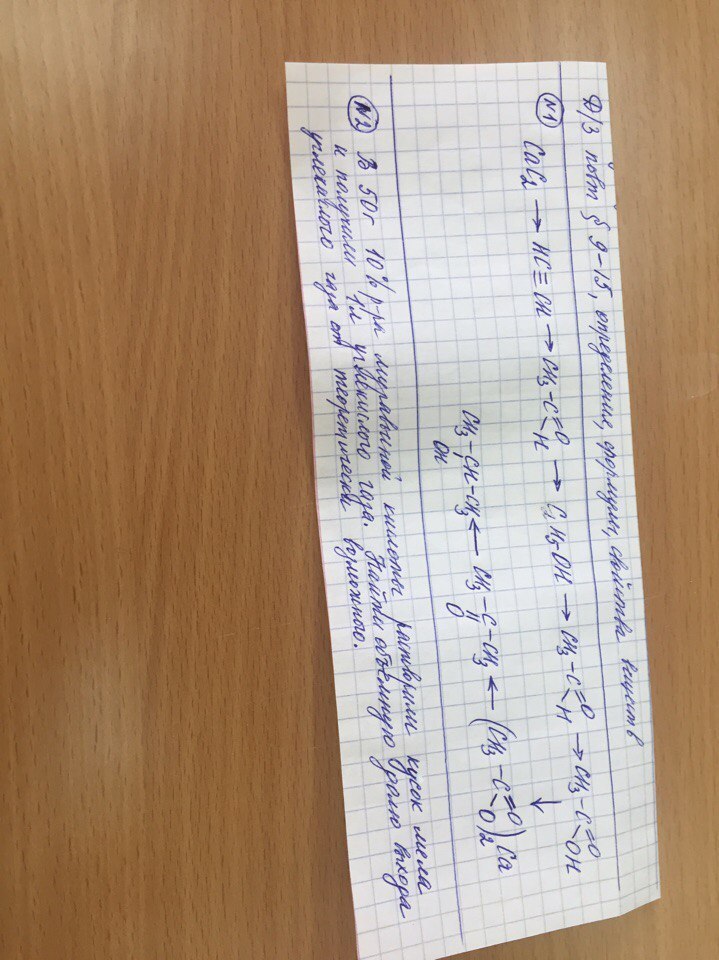 Д/З повт § 9-15, определения, формулы, свойства веществ
№1 CaC2 → HC≡CH → CH3-C=O H → C2H5OH → CH3-C=O H → CH3-C=O OH
↓
CH3-CH-CH3 ← CH3-C-CH3 ← (CH3-C=O O)2 Ca
OH O
№2 В 50г 10% р-ра муравьиной кислоты растворили кусок мела
и получили 1л углекислого газа. Найти объёмную долю выхода
углекислого газа от теоретически возможного.